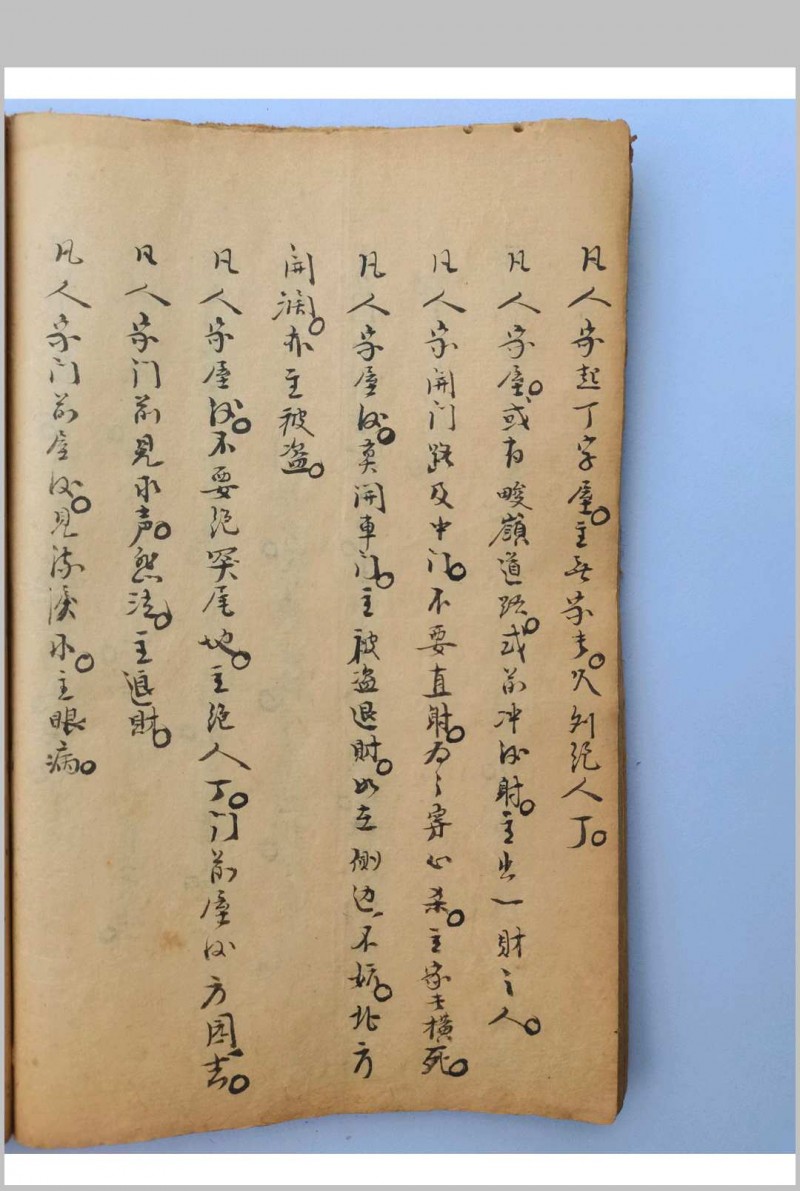 凡人家起丁字屋。主無家長。久則絕人丁。
凡人家屋。或有峻嶺道路。或前冲後射。主出一財之人。
凡人家開门路及中门。不要直射。为之穿心杀。主家長橫死。
凡人家屋後。莫開車门。主被盗退財。如在側边不妨。北方
開湖。亦主被盗。
凡人家屋後。不要绝哭尾地。主绝人丁。门前屋後方圓吉。
凡人家门前見水声。愁泣。主退財。
凡人家门前屋後。見流淚水。主眼病。